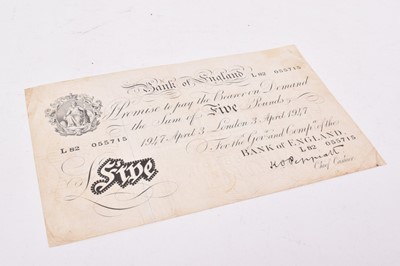 Bank of England L82 055715
I Promise to pay the Bearer on Demand
the Sum of Five Pounds
1947 April 3 London 3 April 1947
L82 055715 For the Govr and Compa of the
BANK of ENGLAND.
L82 055715
K O Peppiatt
£ Five Chief Cashier